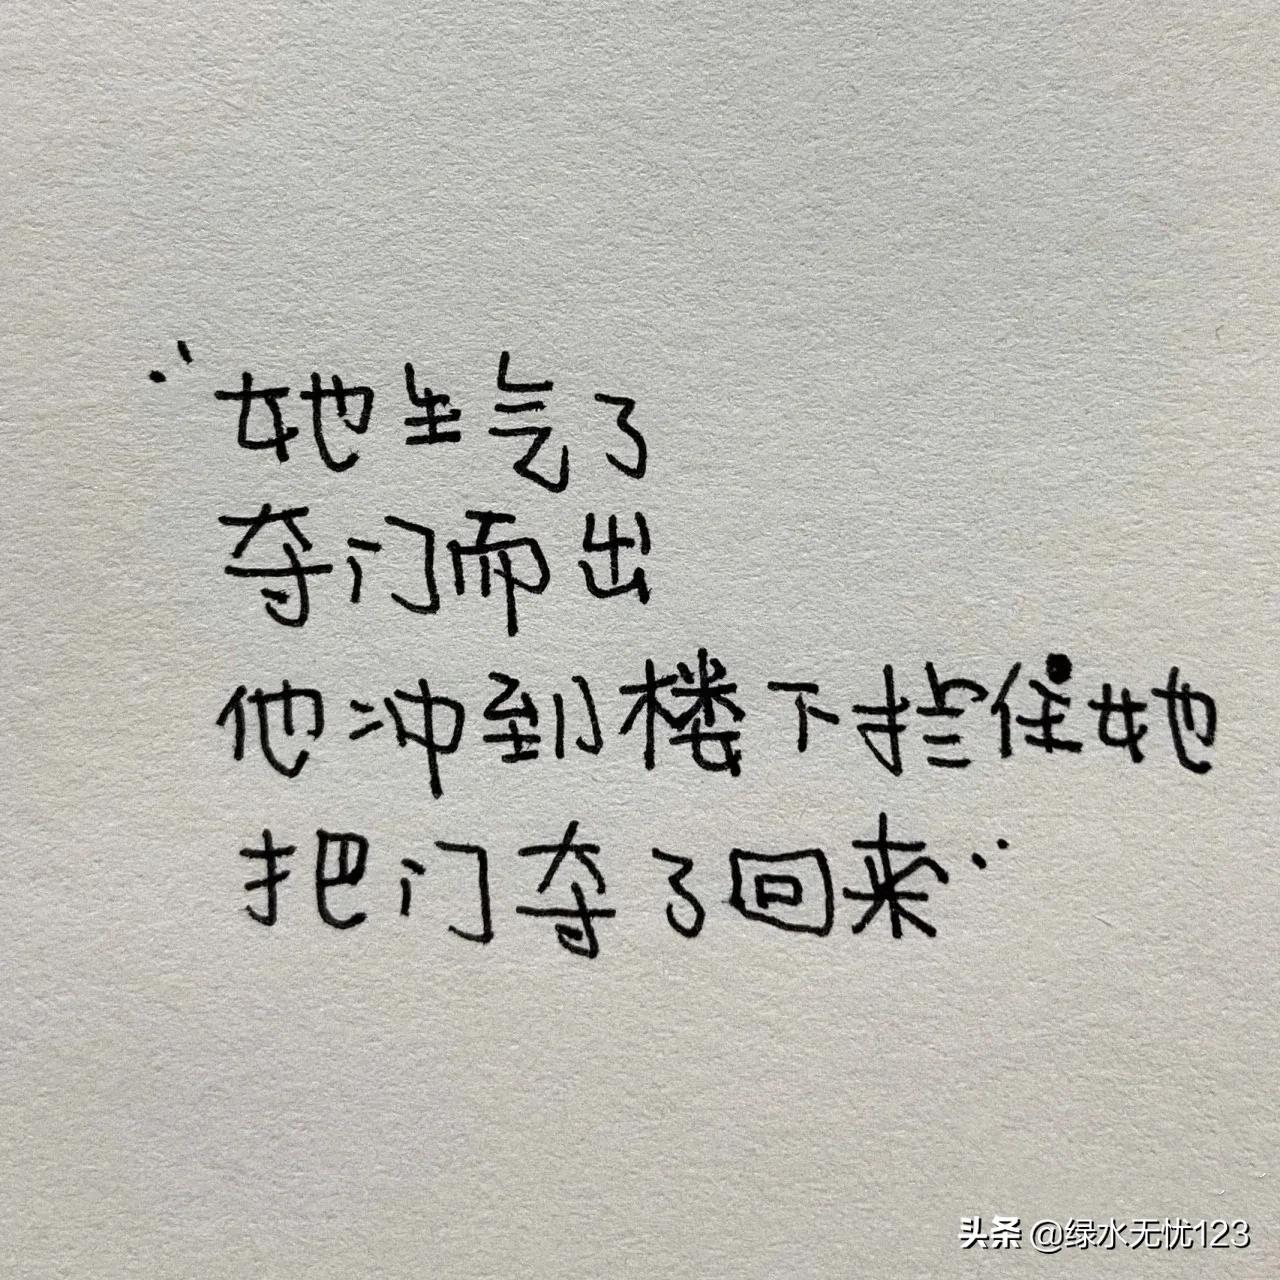 “她生气了
夺门而出
他冲到楼下拦住她
把门夺了回来”
头条 @绿水无忧123